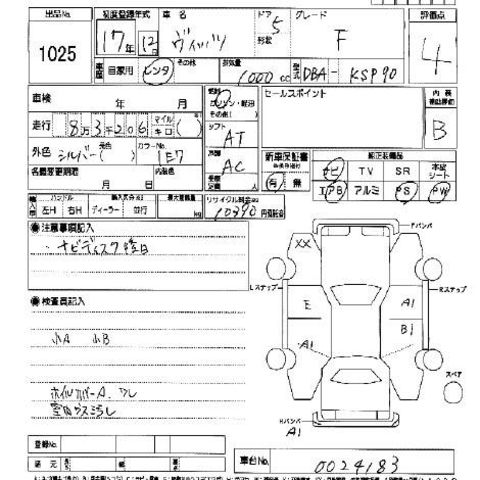 出品No. 初度登録年式 車名 ドア 5 形状 グレード 評価点
1025 17年 12月 ヴィッツ F 4
車歴 自家用 レンタ その他 排気量 1000 cc 型式 DBA-KSP90
車検 年 月 燃料 ガソリン・軽油 その他( ) セールスポイント 内装 補助評価
走行 8万3千206 マイル キロ ( ) シフト AT B
外色 シルバー( ) 元色 カラーNo. 1E7 冷房 AC 新車保証書 純正装備品
名義変更期限 月 日 内装色 乗車定員 人 有・無 ナビ TV SR 本皮シート
エアB アルミ PS PW
輸入車 ハンドル 左H 右H ディーラー 並行 最大積載量 kg リサイクル料金 10390 円預託金
注意事項記入
ナビディスク
Fバンパ
XX
Lステップ Rステップ
E A1
B1
A1
検査員記入
小A 小B
ホイルカバーA、ワレ
スペア
Rバンパ
A1
登録No.
諸元 車台No. 0024183